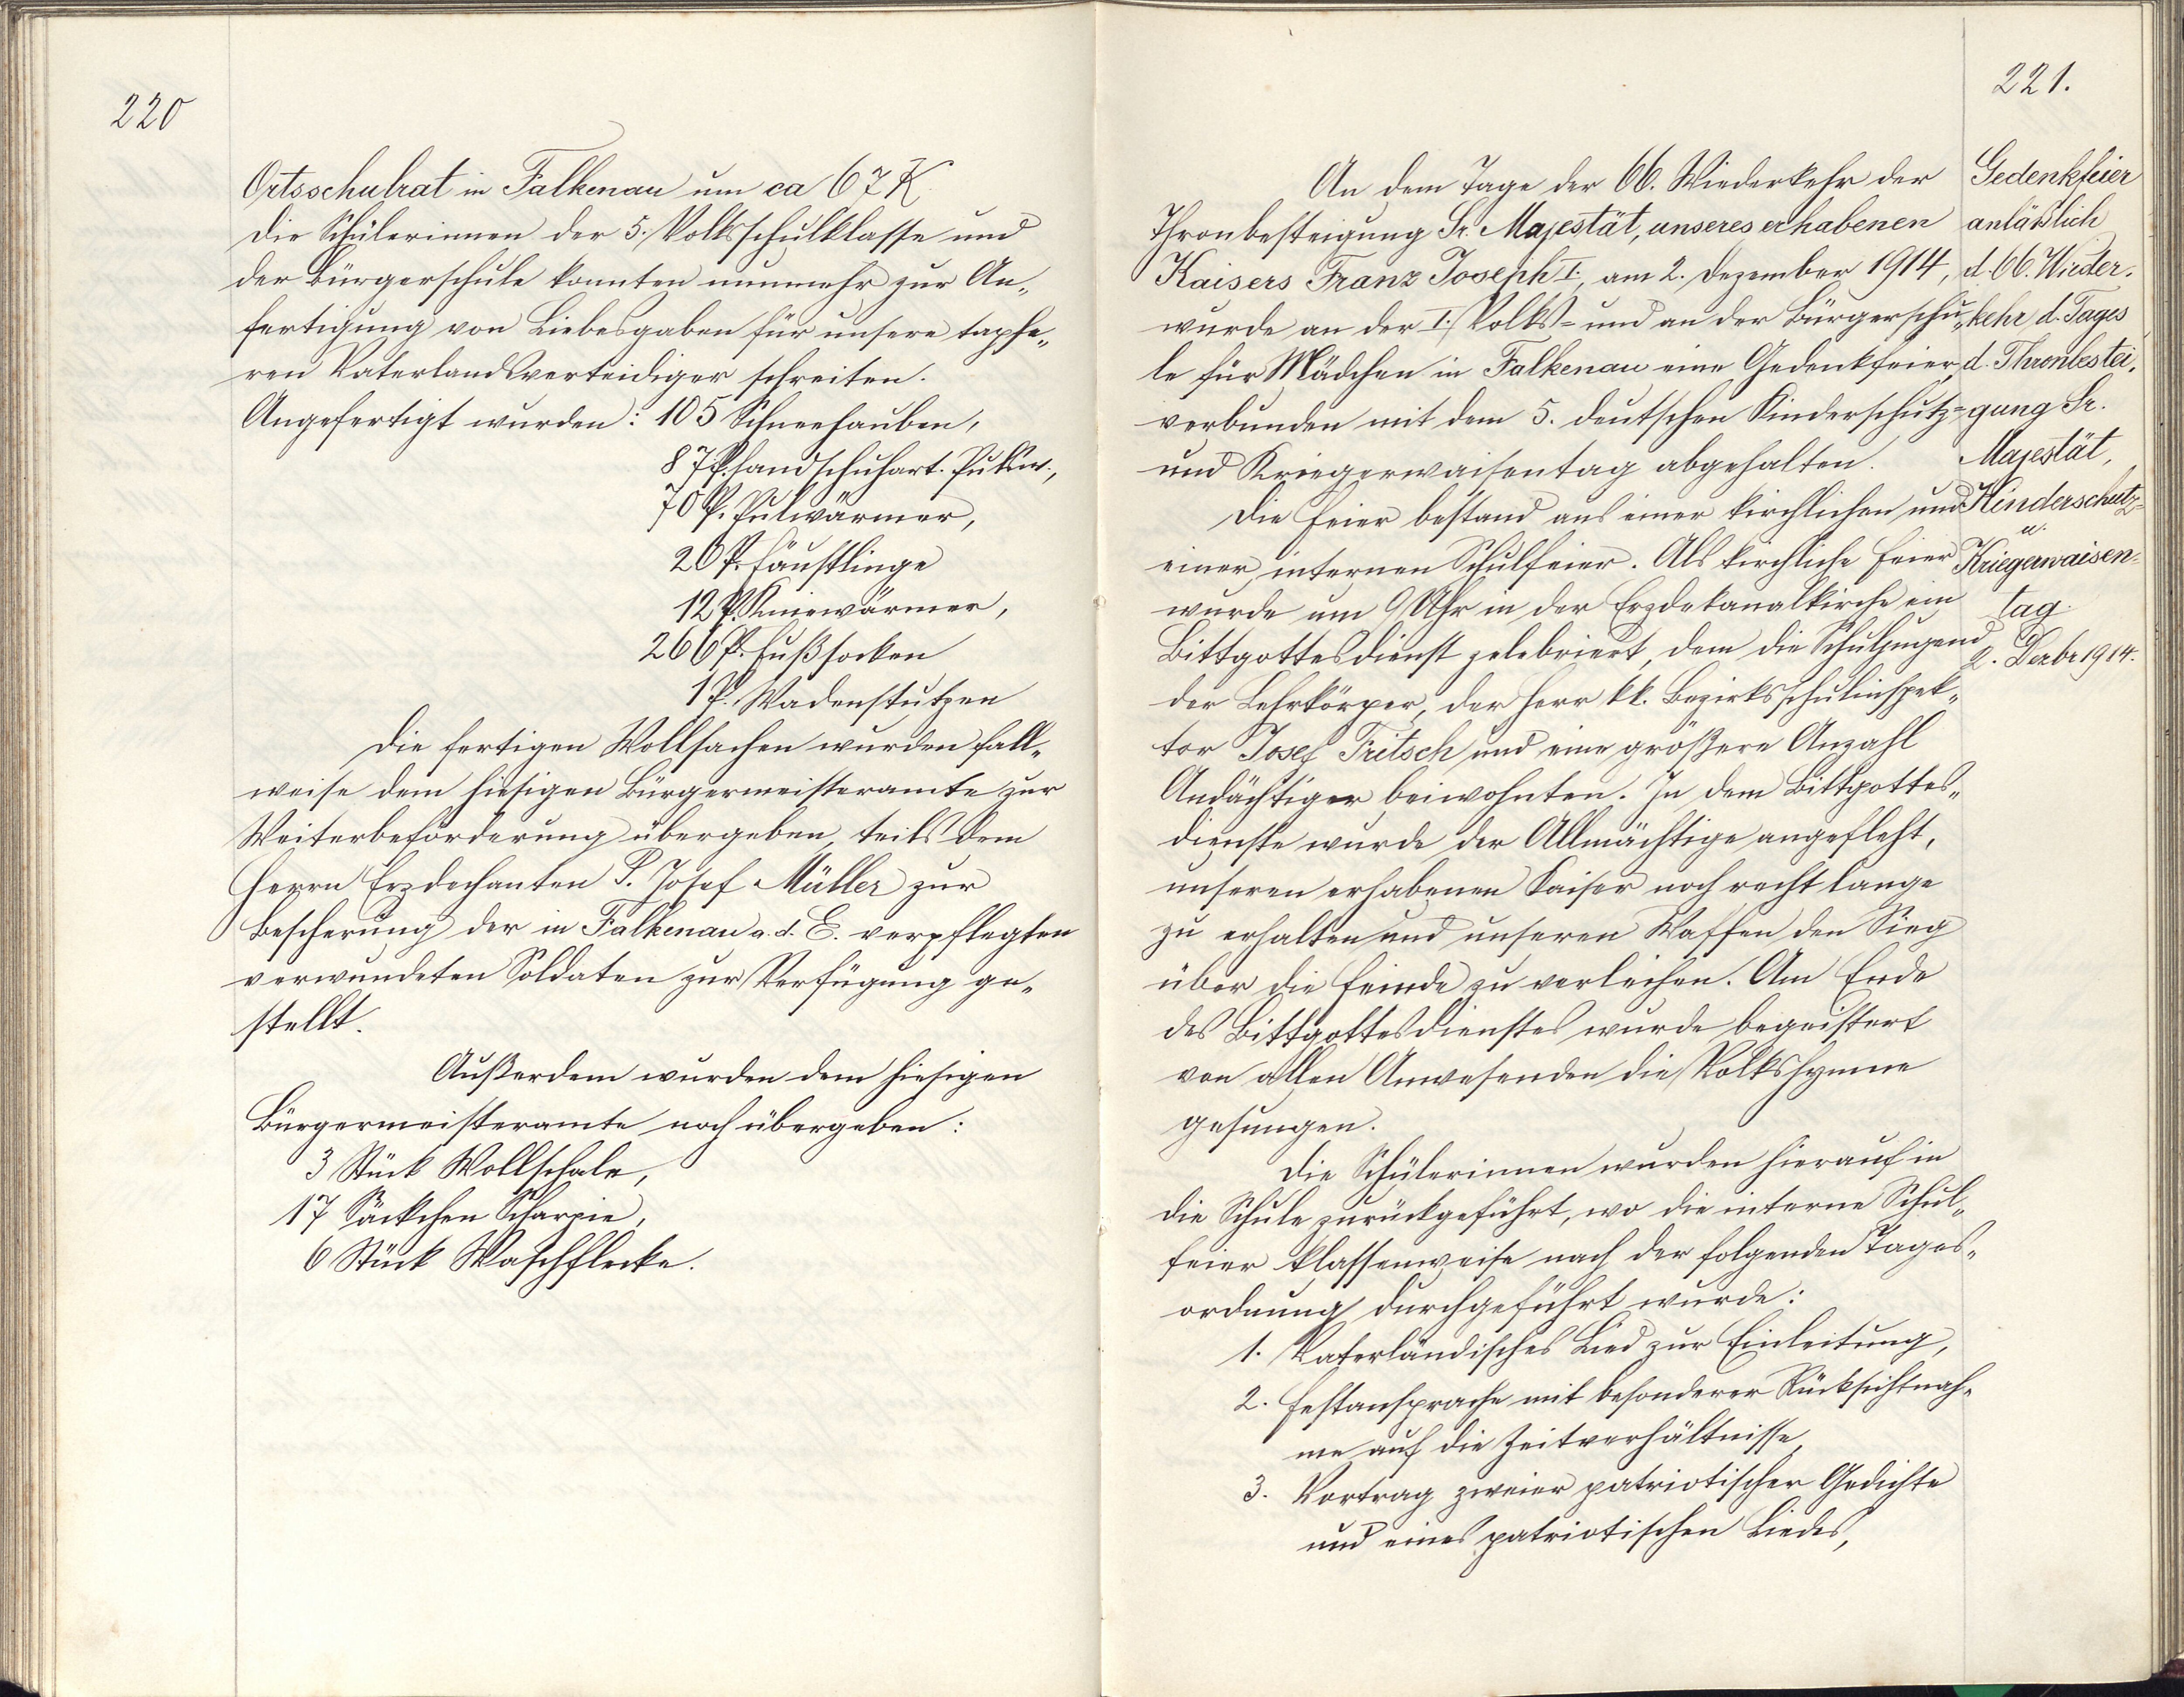 220
Ortsschulrat in Falkenau um ca 67 K.
Die Schülerinnen der 5. Volksschulklasse und
der Bürgerschule konnten nunmehr zur An„
fertigung von Liebesgaben für unsere tapfe„
ren Vaterlandsverteidiger schreiten.
Angefertigt wurden: 105 Schneehauben,
87 P. handschuhart. Pulsw.,
70 P. Pulswärmer,
20 P. Fäustlinge
12 P. Kniewärmer,
266 P. Fußsocken
1 P. Wadenstutzen
Die fertigen Wollsachen wurden fall„
weise dem hiesigen Bürgermeisteramte zur
Weiterbeförderung übergeben, teils dem
Herrn Erzdechanten P. Josef Müller zur
Bescherung der in Falkenau a. d. E. verpflegten
verwundeten Soldaten zur Verfügung ge„
stellt.
Außerdem wurden dem hiesigen
Bürgermeisteramte noch übergeben:
3 Stück Wollschale,
17 Säckchen Scharpie,
6 Stück Waschflecke.
221.
An dem Tage der 66. Wiederkehr der
Thronbesteigung Sr. Majestät, unseres erhabenen
Kaisers Franz Joseph I., am 2. Dezember 1914,
wurde an der I. Volks- und an der Bürgerschu„
le für Mädchen in Falkenau eine Gedenkfeier,
verbunden mit dem 5. deutschen Kinderschutz-
und Kriegerwaisentag abgehalten.
Die Feier bestand aus einer kirchlichen und
einer internen Schulfeier. Als kirchliche Feier
wurde um 9 Uhr in der Erzdekanalkirche ein
Bittgottesdienst zelebriert, dem die Schuljugend
der Lehrkörper, der Herr kk. Bezirksschulinspek„
tor Josef Tritsch und eine größere Anzahl
Andächtiger beiwohnten. In dem Bittgottes„
dienste wurde der Allmächtige angefleht,
unseren erhabenen Kaiser noch recht lange
zu erhalten und unseren Waffen den Sieg
über die Feinde zu verleihen. Am Ende
des Bittgottesdienstes wurde begeistert
von allen Anwesenden die Volkshymne
gesungen.
Die Schülerinnen wurden hierauf in
die Schule zurückgeführt, wo die interne Schul„
feier klassenweise nach der folgenden Tages„
ordnung durchgeführt wurde:
1. Vaterländisches Lied zur Einleitung,
2. Festansprache mit besonderer Rücksichtnah„
me auf die Zeitverhältnisse,
3. Vortrag zweier patriotischer Gedichte
und eines patriotischen Liedes,
Gedenkfeier
anläßlich
d. 66. Wieder„
kehr d. Tages
d. Thronbestei„
gung Sr.
Majestät,
Kinderschutz-
u.
Kriegerwaisen-
tag.
2. Dezbr 1914.